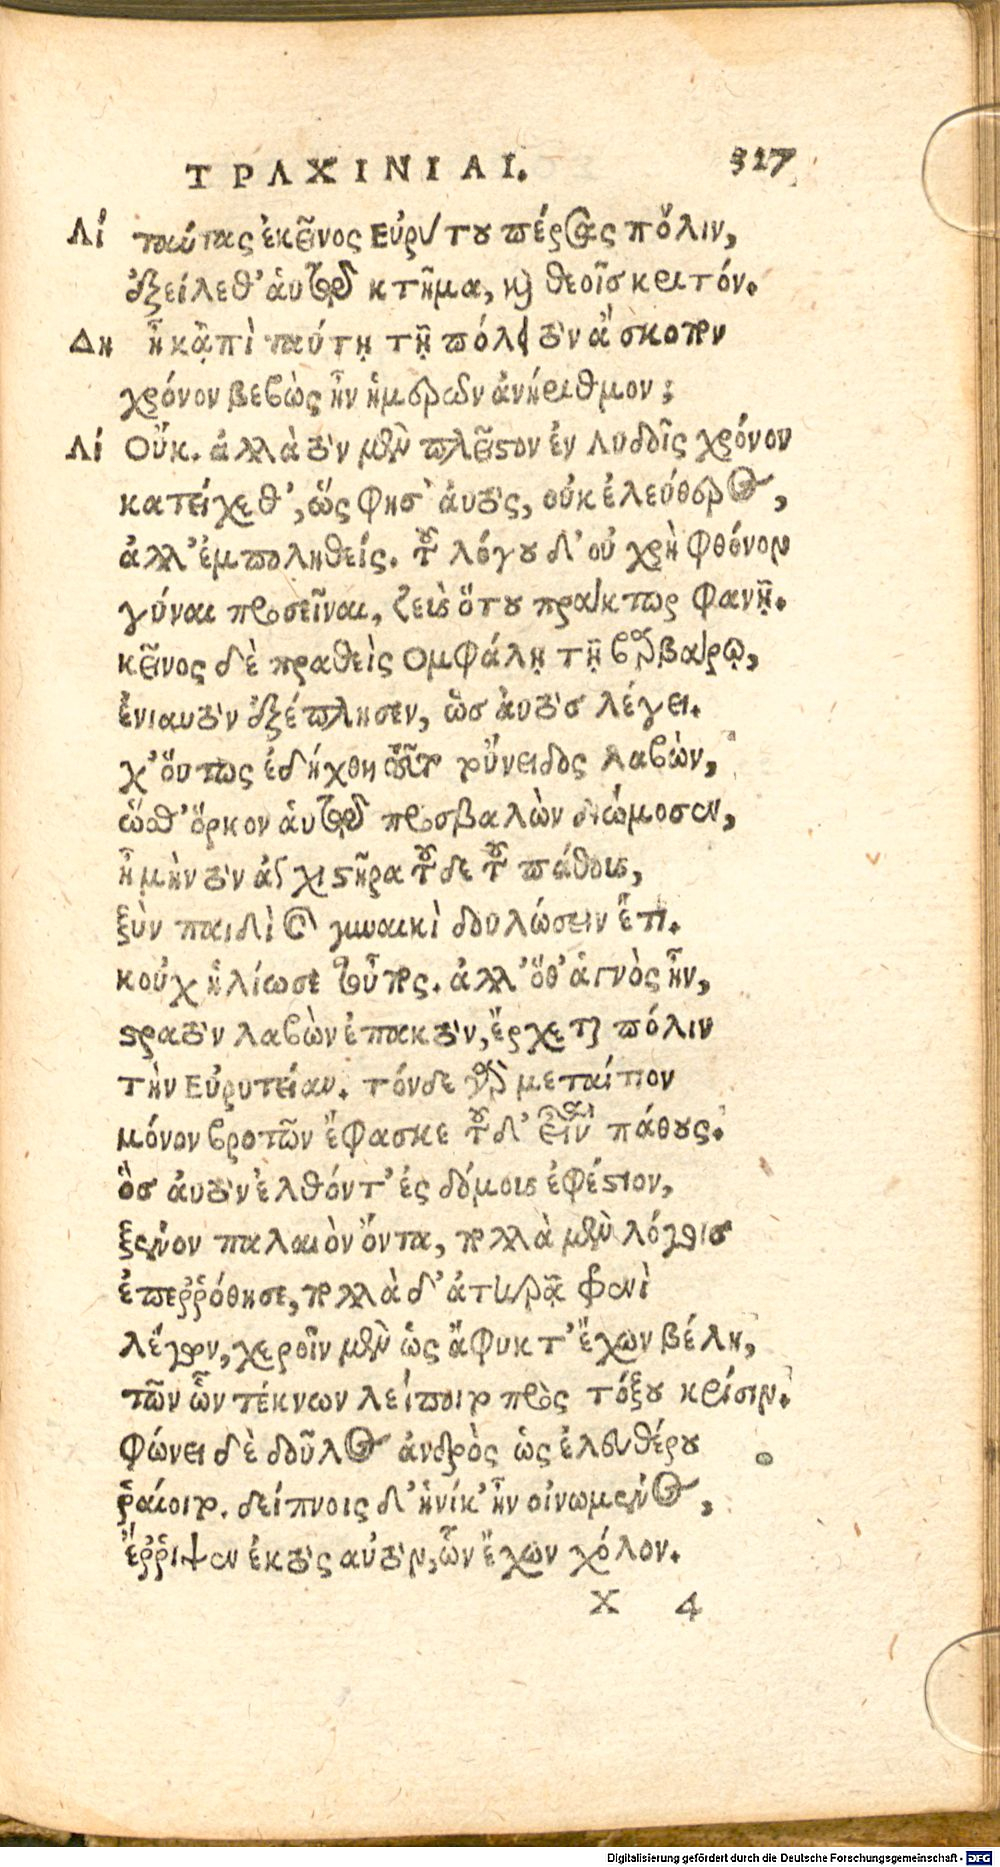 ΤΡΑΧΙΝΙΑΙ. 327
Λί ταύτας ἐκεῖνος Εὐρύτου πέρσας πόλιν,
ἐξείλεθ' ἁυτῷ κτῆμα, καὶ θεοῖσ κριτόν.
Δη ἦ κᾀπὶ ταύτῃ τῇ πόλει τὸν ἄσκοπον
χρόνον βεβὼς ἦν ἡμερῶν ἀνήριθμον;
Λί Οὔκ. ἀλλὰ τὸν μὲν πλεῖστον ἐν Λυδοῖς χρόνον
κατείχεθ', ὥς φησ' ἀυτὸς, οὐκ ἐλεύθερος,
ἀλλ' ἐμποληθείς. τοῦ λόγου δ' οὐ χρὴ φθόνον
γύναι προσεῖναι, ζεὺς ὅτου πράκτωρ φανῇ.
κεῖνος δὲ πραθεὶς Ομφάλῃ τῇ βαρβάρῳ,
ἐνιαυτὸν ἐξέπλησεν, ὡσ ἀυτὸσ λέγει.
χ' ὅυτως ἐδήχθη τοῦτο τοὔνειδος λαβὼν,
ὥσθ' ὅρκον ἁυτῷ προσβαλὼν διώμοσεν,
ἦ μὴν τὸν ἀγχιστῆρα τοῦδε τοῦ πάθους,
ξὺν παιδὶ καὶ γυναικὶ δουλώσειν ἔτι.
κοὐχ ἡλίωσε τοὖπος. ἀλλ' ὅθ' ἁγνὸς ἦν,
στρατὸν λαβὼν ἐπακτὸν, ἔρχεται πόλιν
τὴν Εὐρυτείαν. τόνδε γὰρ μεταίτιον
μόνον βροτῶν ἔφασκε τοῦδ' εἶναι πάθους.
ὃσ ἀυτὸν ἐλθόντ' ἐς δόμους ἐφέστιον,
ξένον παλαιὸν ὄντα, πολλὰ μὲν λόγοισ
ἐπεῤῥόθησε, πολλὰ δ' ἀτηρᾷ φρενὶ
λέγων, χεροῖν μὲν ὡς ἄφυκτ' ἔχων βέλη,
τῶν ὧν τέκνων λείποιτο πρὸς τόξου κρίσιν.
φώνει δὲ δοῦλος ἀνδρὸς ὡς ἐλευθέρου
ῥαίοιτο. δείπνοις δ' ἡνίκ' ἦν οἰνωμένος,
ἔῤῥιψεν ἐκτὸς αὐτὸν, ὧν ἔχων χόλον.
X 4
Digitalisierung gefördert durch die Deutsche Forschungsgemeinschaft - DFG